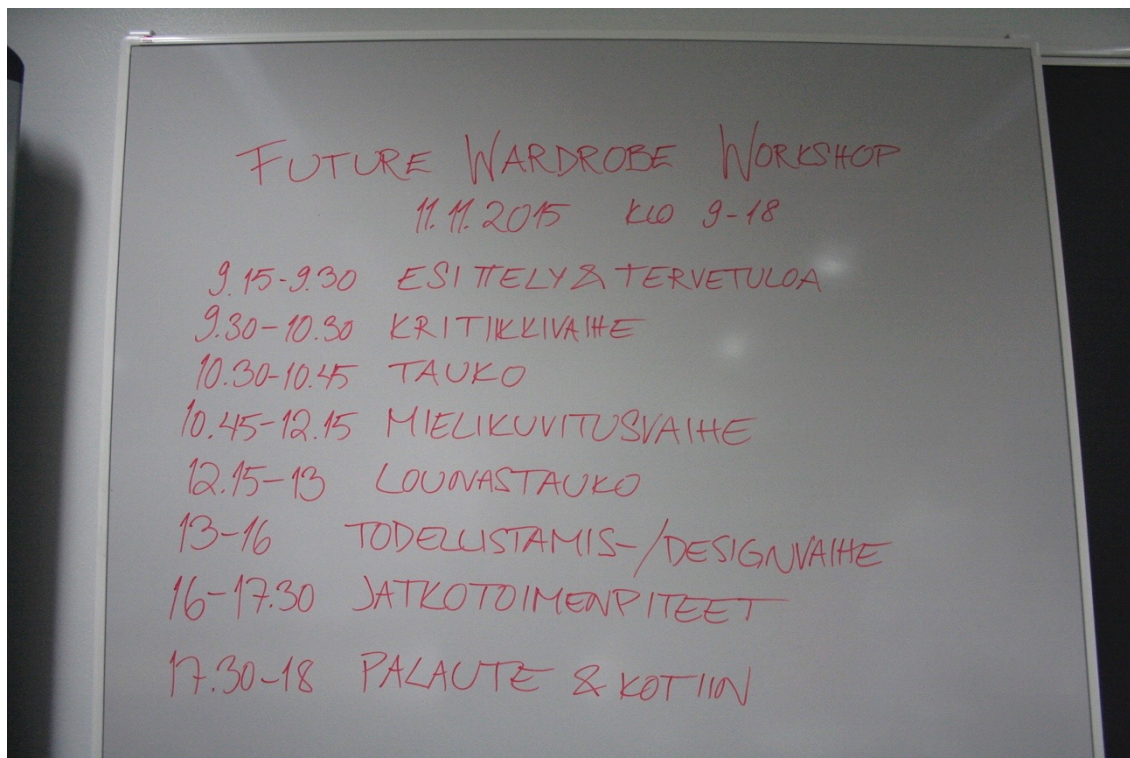 FUTURE WARDROBE WORKSHOP
11.11.2015 KLO 9-18
9.15-9.30 ESITTELY & TERVETULOA
9.30-10.30 KRITIIKKIVAIHE
10.30-10.45 TAUKO
10.45-12.15 MIELIKUVITUSVAIHE
12.15-13 LOUNASTAUKO
13-16 TODELLISTAMIS-/DESIGNVAIHE
16-17.30 JATKOTOIMENPITEET
17.30-18 PALAUTE & KOTIIN